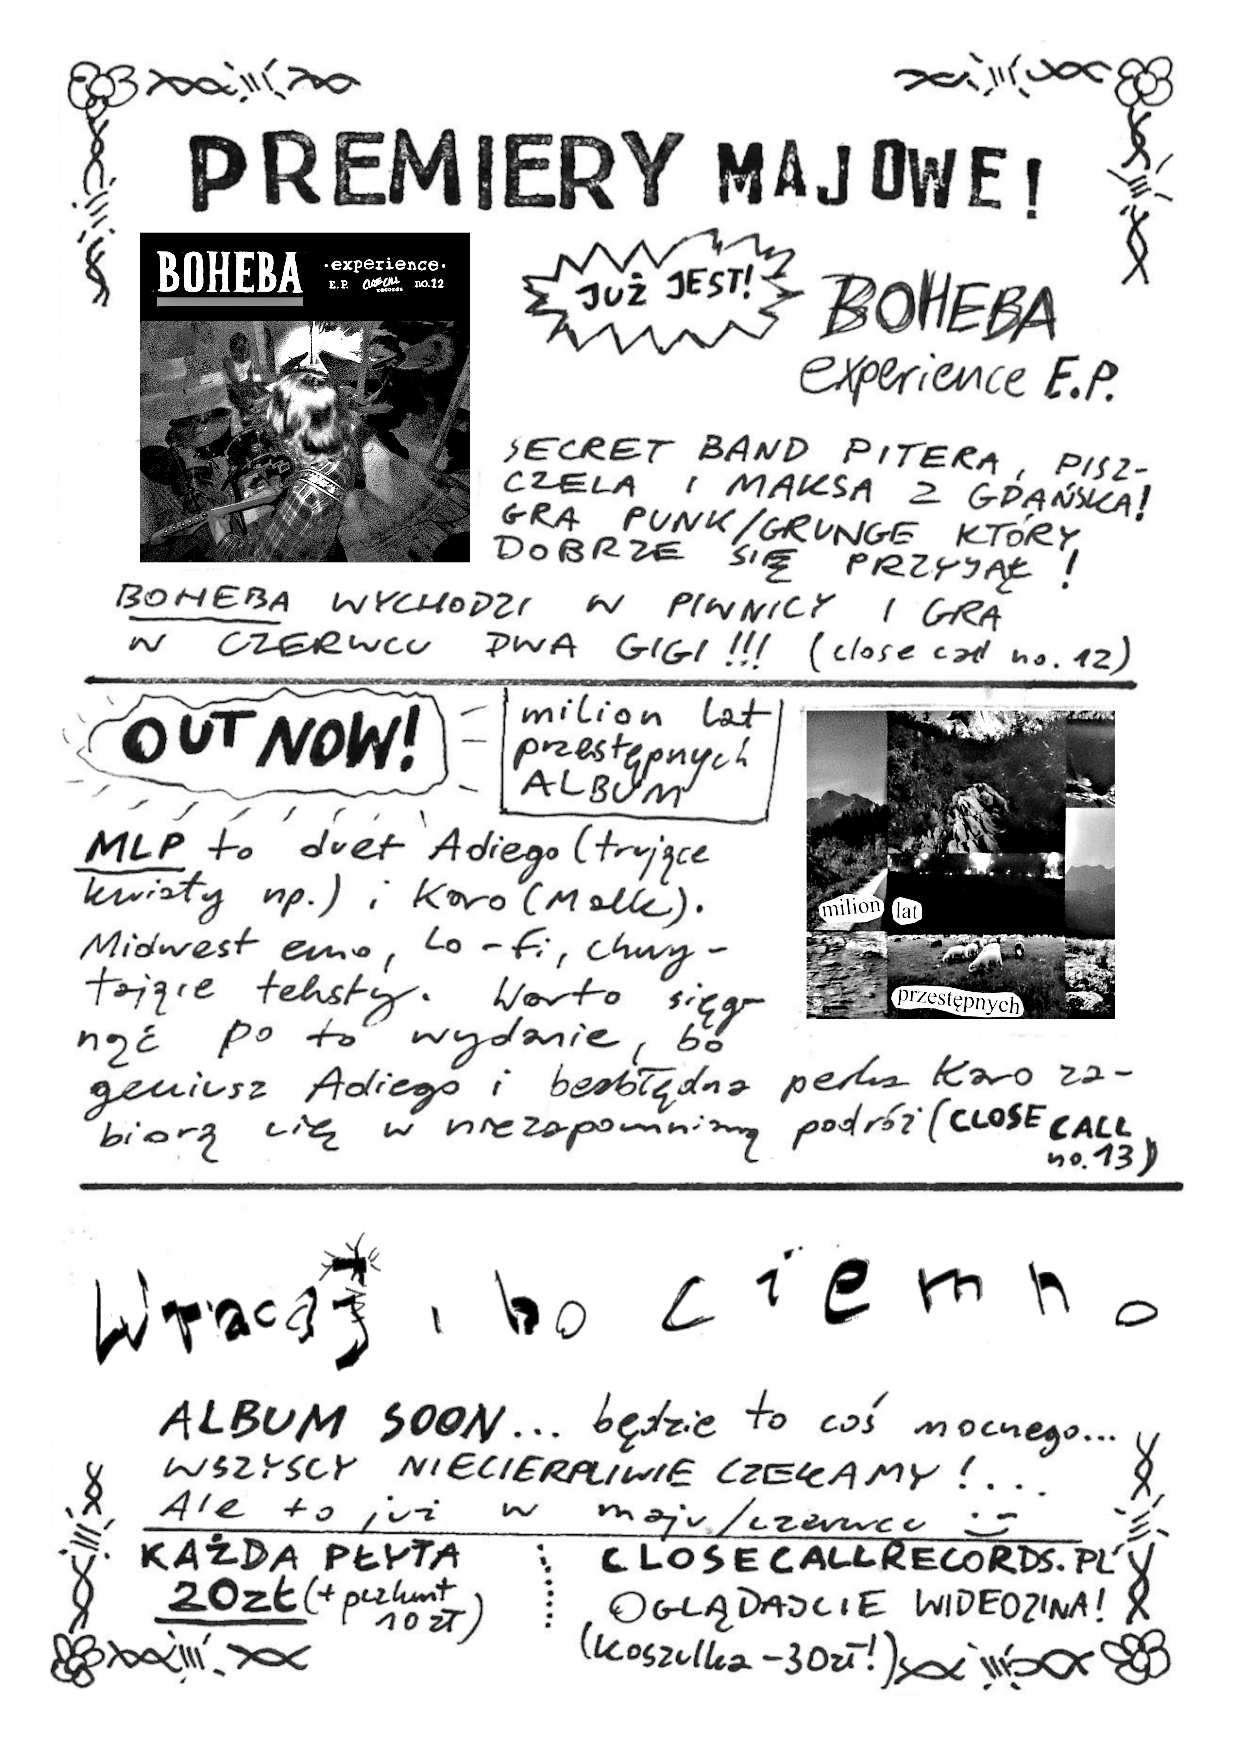 PREMIERY MAJOWE!
BOHEBA
·experience·
E.P. CLOSE CALL records no.12
JUŻ JEST!
BOHEBA
experience E.P.
SECRET BAND PITERA, PISZ-
CZELA I MAKSA Z GDAŃSKA!
GRA PUNK/GRUNGE KTÓRY
DOBRZE SIĘ PRZYJĄŁ!
BOHEBA WYCHODZI W PIWNICY I GRA
W CZERWCU DWA GIGI!!! (close call no. 12)
OUT NOW!
milion lat
przestępnych
ALBUM
milion lat
przestępnych
MLP to duet Adiego (trujące
kwiaty np.) i Karo (Malk).
Midwest emo, Lo-fi, chwy-
tające teksty. Warto sięg-
nąć po to wydanie, bo
geniusz Adiego i bezbłędna perka Karo za-
biorą cię w niezapomnianą podróż (CLOSE CALL
no.13)
Wracaj, bo ciemno
ALBUM SOON... będzie to coś mocnego...
WSZYSCY NIECIERPLIWIE CZEKAMY!...
Ale to już w maju/czerwcu :)
KAŻDA PŁYTA
20zł (+ pczkmt
10 zł)
CLOSECALLRECORDS.PL
OGLĄDAJCIE WIDEOZINA!
(koszulka - 30zł!)